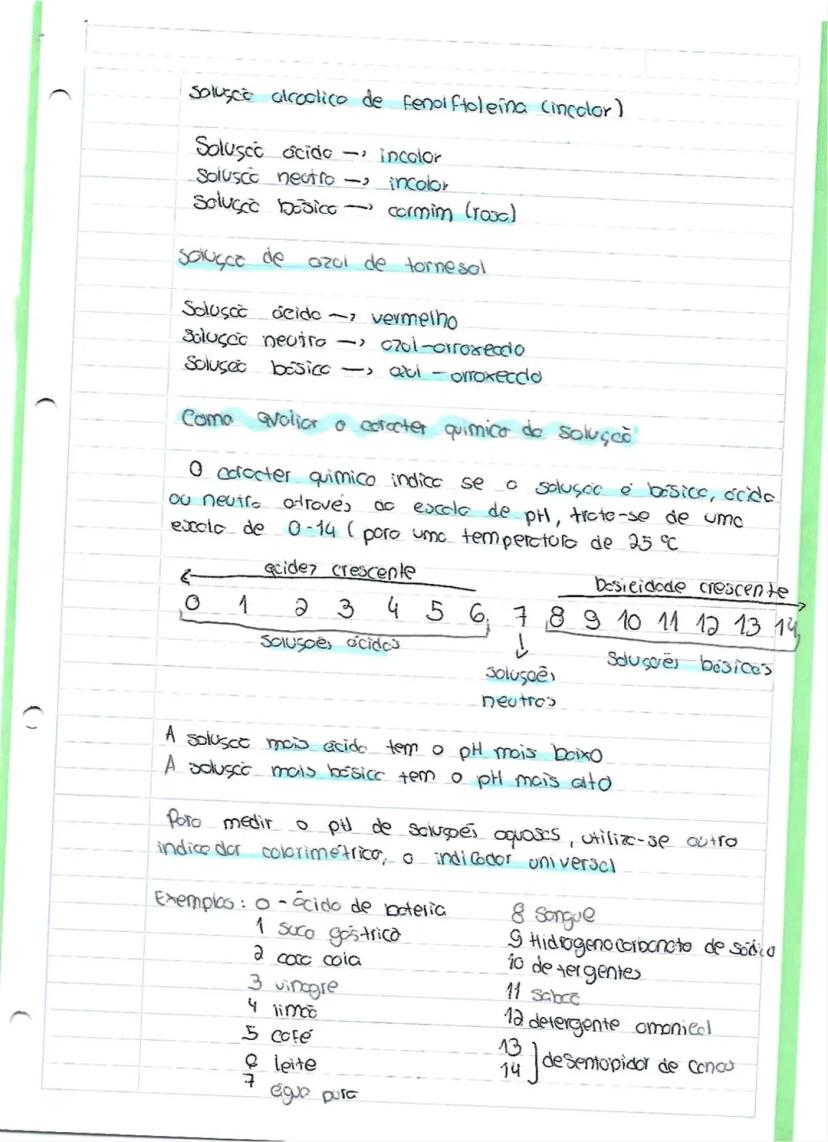 Solução alcoólica de fenolftaleína (incolor)
Solução ácida → incolor
Solução neutra → incolor
Solução básica → carmim (rosa)
Solução de azul de tornesol
Solução ácida → vermelho
Solução neutra → azul-arroxeado
Solução básica → azul-arroxeado
Como avaliar o caracter químico da solução
O caracter químico indica se a solução é básica, ácida
ou neutra através da escala de pH, trata-se de uma
escala de 0-14 (para uma temperatura de 25 ºC
acidez crescente
basicidade crescente
0 1 2 3 4 5 6 7 8 9 10 11 12 13 14
soluções ácidas
soluções
neutras
Soluções básicas
A solução mais ácida tem o pH mais baixo
A solução mais básica tem o pH mais alto
Para medir o pH de soluções aquosas, utiliza-se outro
indicador colorimétrico, o indicador universal
Exemplos: 0 - ácido de bateria
1 suco gástrico
2 coca cola
3 vinagre
4 limão
5 café
6 leite
7 água pura
8 sangue
9 Hidrogenocarbonato de sódio
10 detergentes
11 sabão
12 detergente amoniacal
13
14 desentupidor de canos